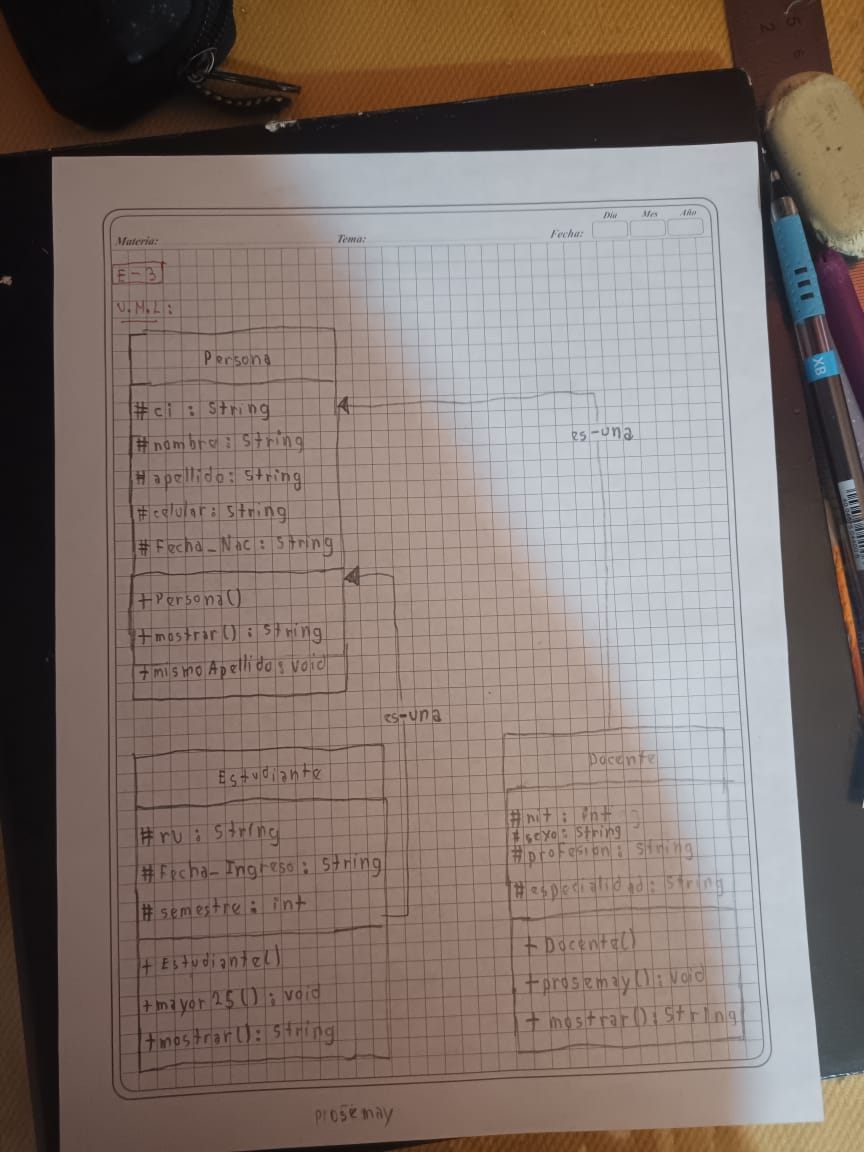 Día Mes Año
Materia: Tema: Fecha:
E-3
U.M.L:
Persona
#ci : String
#nombre : String
#apellido : String
#celular : String
#Fecha_Nac : String
+Persona()
+mostrar() : String
+mismoApellido : void
es-una
es-una
Estudiante
#ru : String
#Fecha-Ingreso : String
#semestre : int
+ Estudiante()
+mayor25() : void
+mostrar() : String
Docente
#nit : int
#sexo : String
#profesion : String
#especialidad : String
+ Docente()
+prosemay() : void
+ mostrar() : String
prosemay
XB
5
6
2